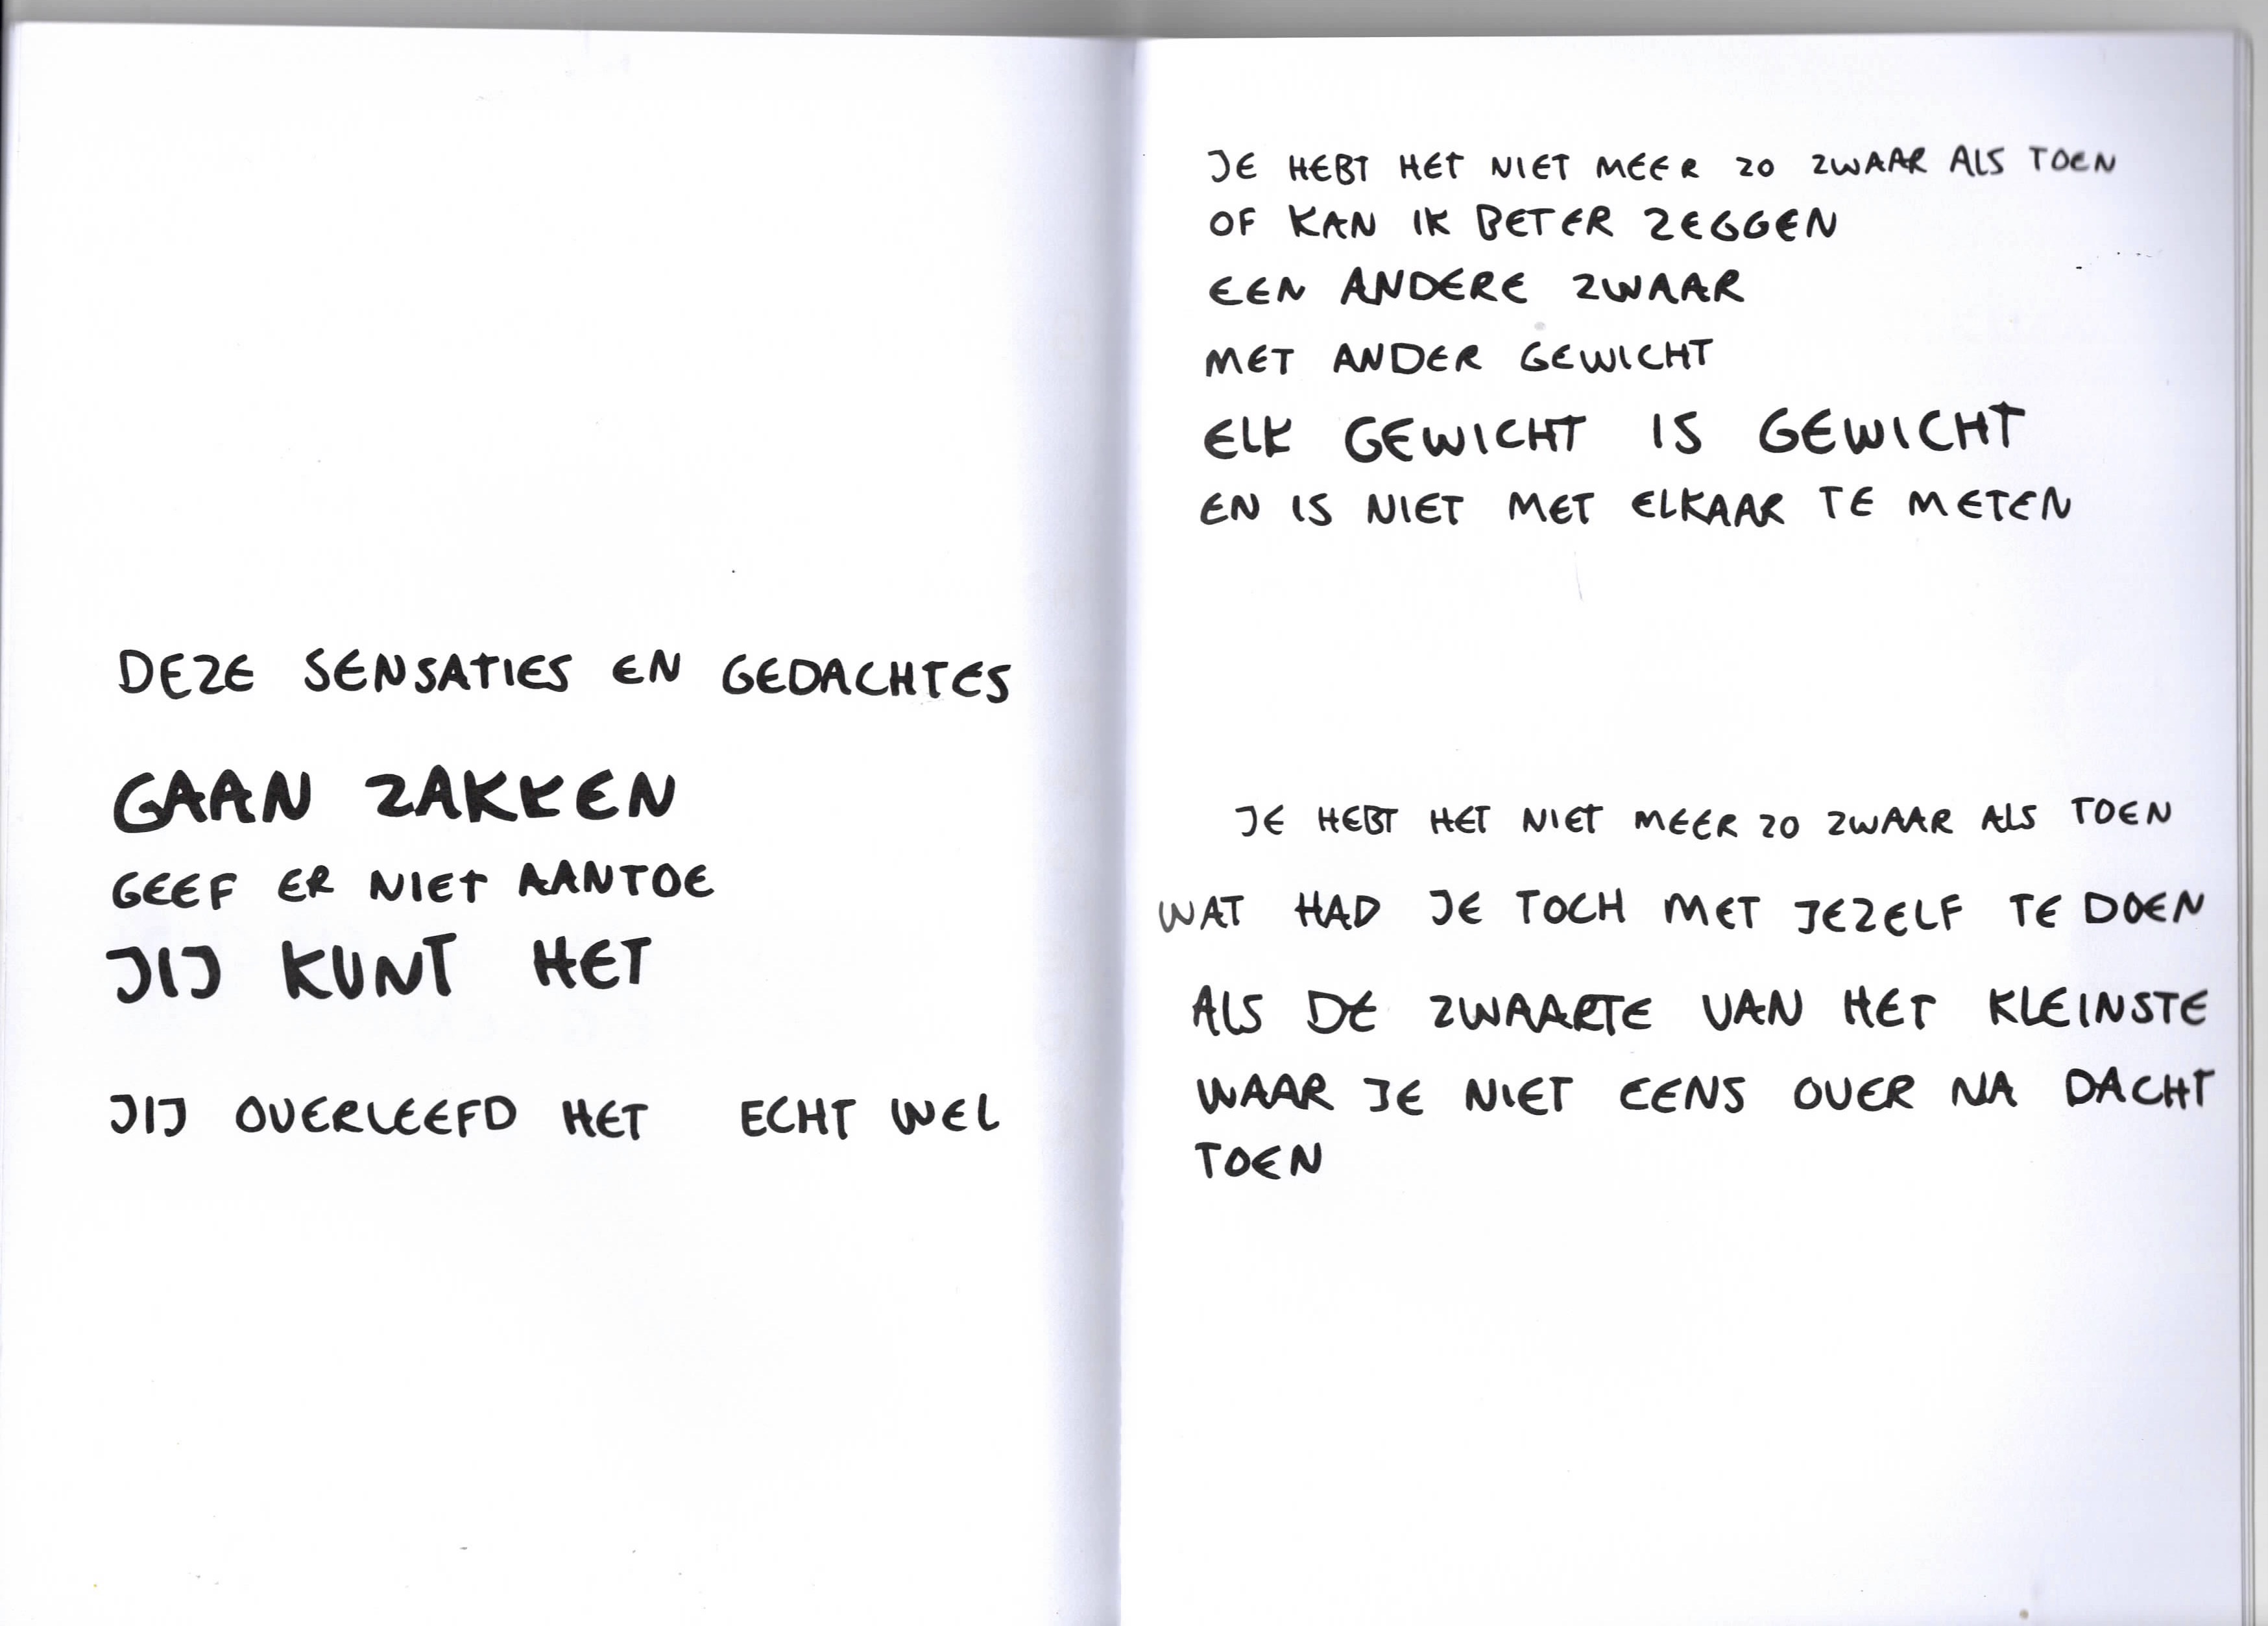 DEZE SENSATIES EN GEDACHTES
GAAN ZAKKEN
GEEF ER NIET AANTOE
JIJ KUNT HET
JIJ OVERLEEFD HET ECHT WEL
JE HEBT HET NIET MEER ZO ZWAAR ALS TOEN
OF KAN IK BETER ZEGGEN
EEN ANDERE ZWAAR
MET ANDER GEWICHT
ELK GEWICHT IS GEWICHT
EN IS NIET MET ELKAAR TE METEN
JE HEBT HET NIET MEER ZO ZWAAR ALS TOEN
WAT HAD JE TOCH MET JEZELF TE DOEN
ALS DE ZWAARTE VAN HET KLEINSTE
WAAR JE NIET EENS OVER NA DACHT
TOEN